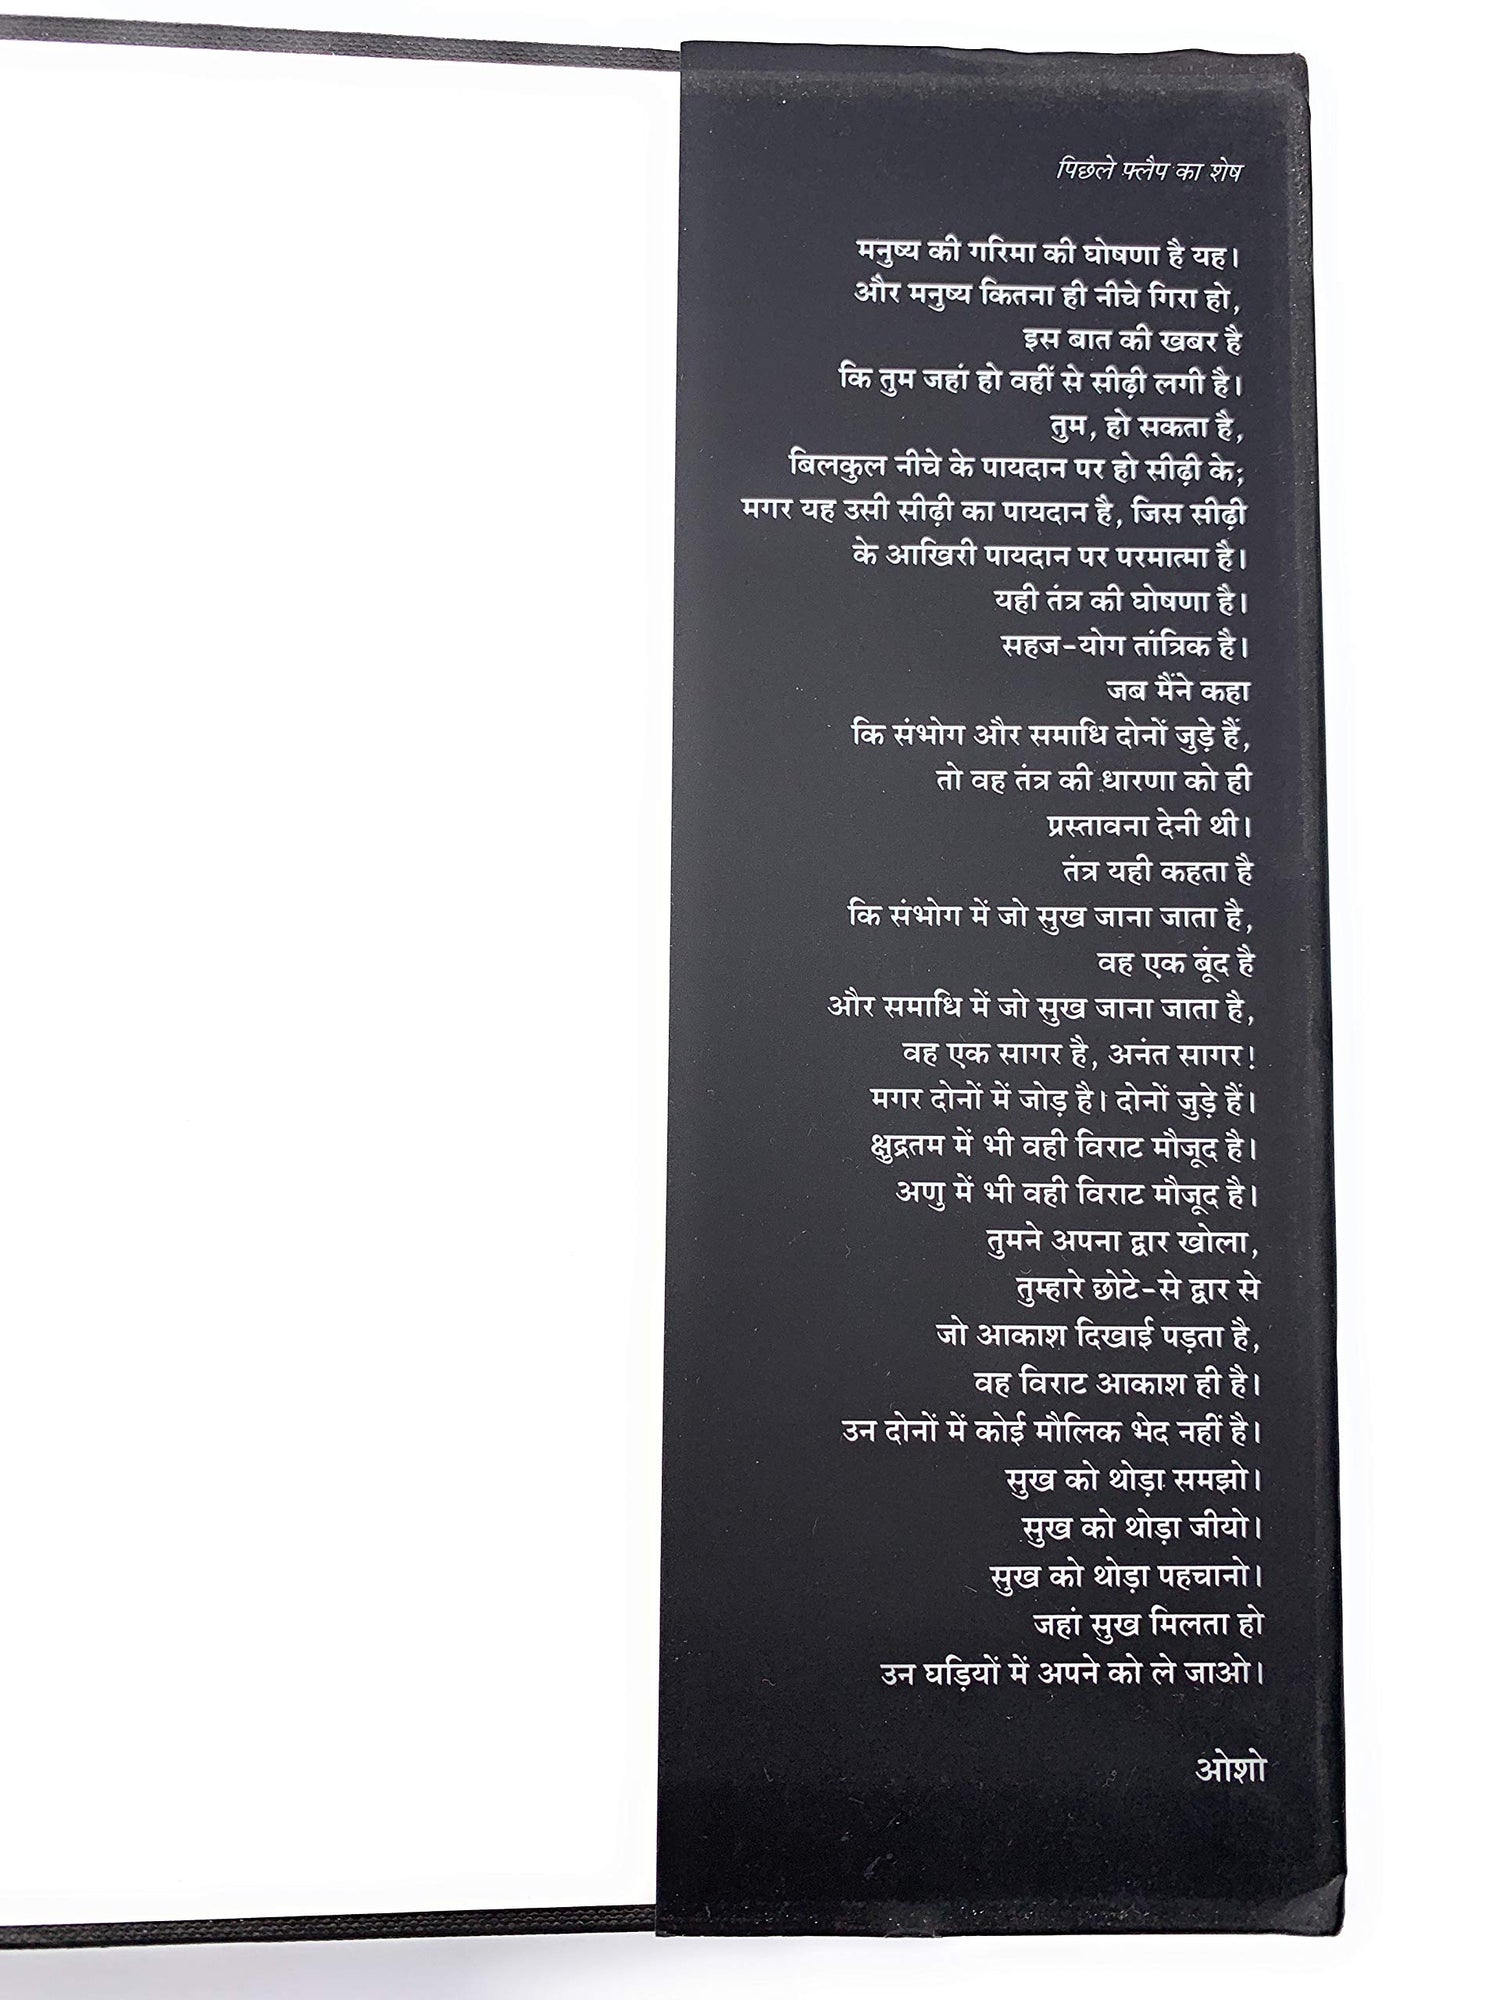 पिछले फ्लैप का शेष
मनुष्य की गरिमा की घोषणा है यह।
और मनुष्य कितना ही नीचे गिरा हो,
इस बात की खबर है
कि तुम जहां हो वहीं से सीढ़ी लगी है।
तुम, हो सकता है,
बिलकुल नीचे के पायदान पर हो सीढ़ी के;
मगर यह उसी सीढ़ी का पायदान है, जिस सीढ़ी
के आखिरी पायदान पर परमात्मा है।
यही तंत्र की घोषणा है।
सहज-योग तांत्रिक है।
जब मैंने कहा
कि संभोग और समाधि दोनों जुड़े हैं,
तो वह तंत्र की धारणा को ही
प्रस्तावना देनी थी।
तंत्र यही कहता है
कि संभोग में जो सुख जाना जाता है,
वह एक बूंद है
और समाधि में जो सुख जाना जाता है,
वह एक सागर है, अनंत सागर!
मगर दोनों में जोड़ है। दोनों जुड़े हैं।
क्षुद्रतम में भी वही विराट मौजूद है।
अणु में भी वही विराट मौजूद है।
तुमने अपना द्वार खोला,
तुम्हारे छोटे-से द्वार से
जो आकाश दिखाई पड़ता है,
वह विराट आकाश ही है।
उन दोनों में कोई मौलिक भेद नहीं है।
सुख को थोड़ा समझो।
सुख को थोड़ा जीयो।
सुख को थोड़ा पहचानो।
जहां सुख मिलता हो
उन घड़ियों में अपने को ले जाओ।
ओशो